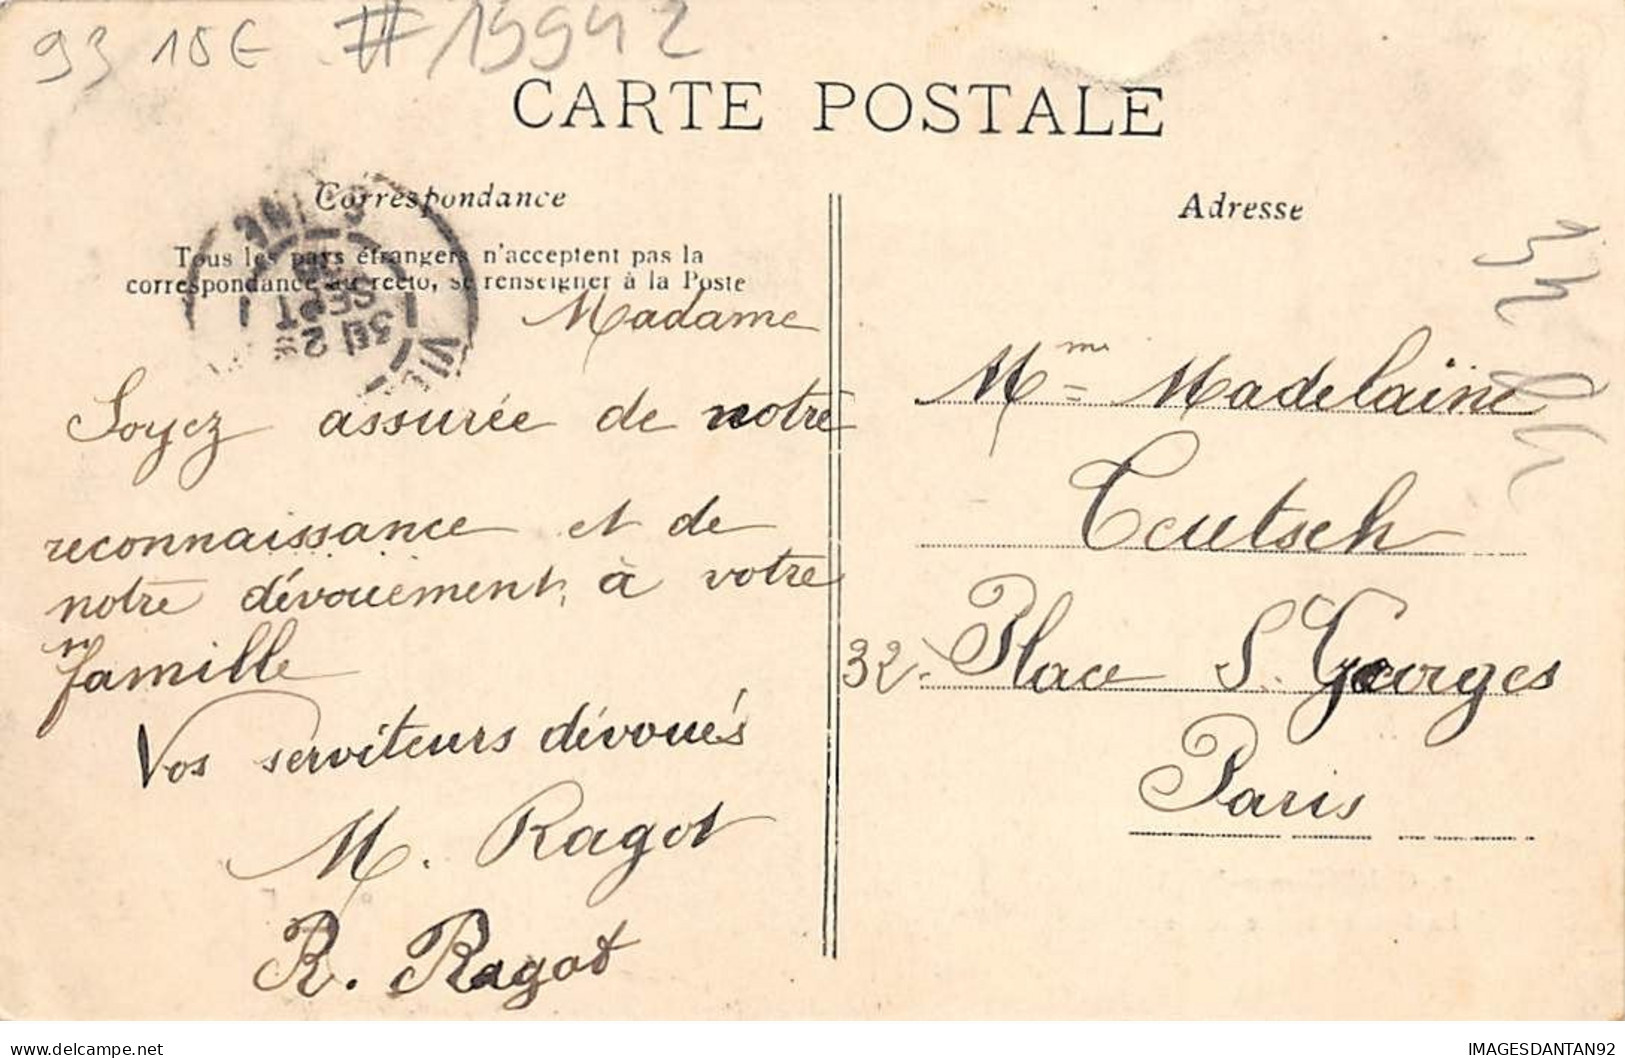 93 15€ #15942
CARTE POSTALE
Correspondance
Tous les pays étrangers n'acceptent pas la
correspondance au recto, se renseigner à la Poste
Madame
Soyez assurée de notre
reconnaissance et de
notre dévouement, à votre
famille
Vos serviteurs dévoués
M. Ragot
R. Ragot
Adresse
Mme Madelaine
Teutsch
32. Place St. Georges
Paris
SEPT
IMAGESDANTAN92